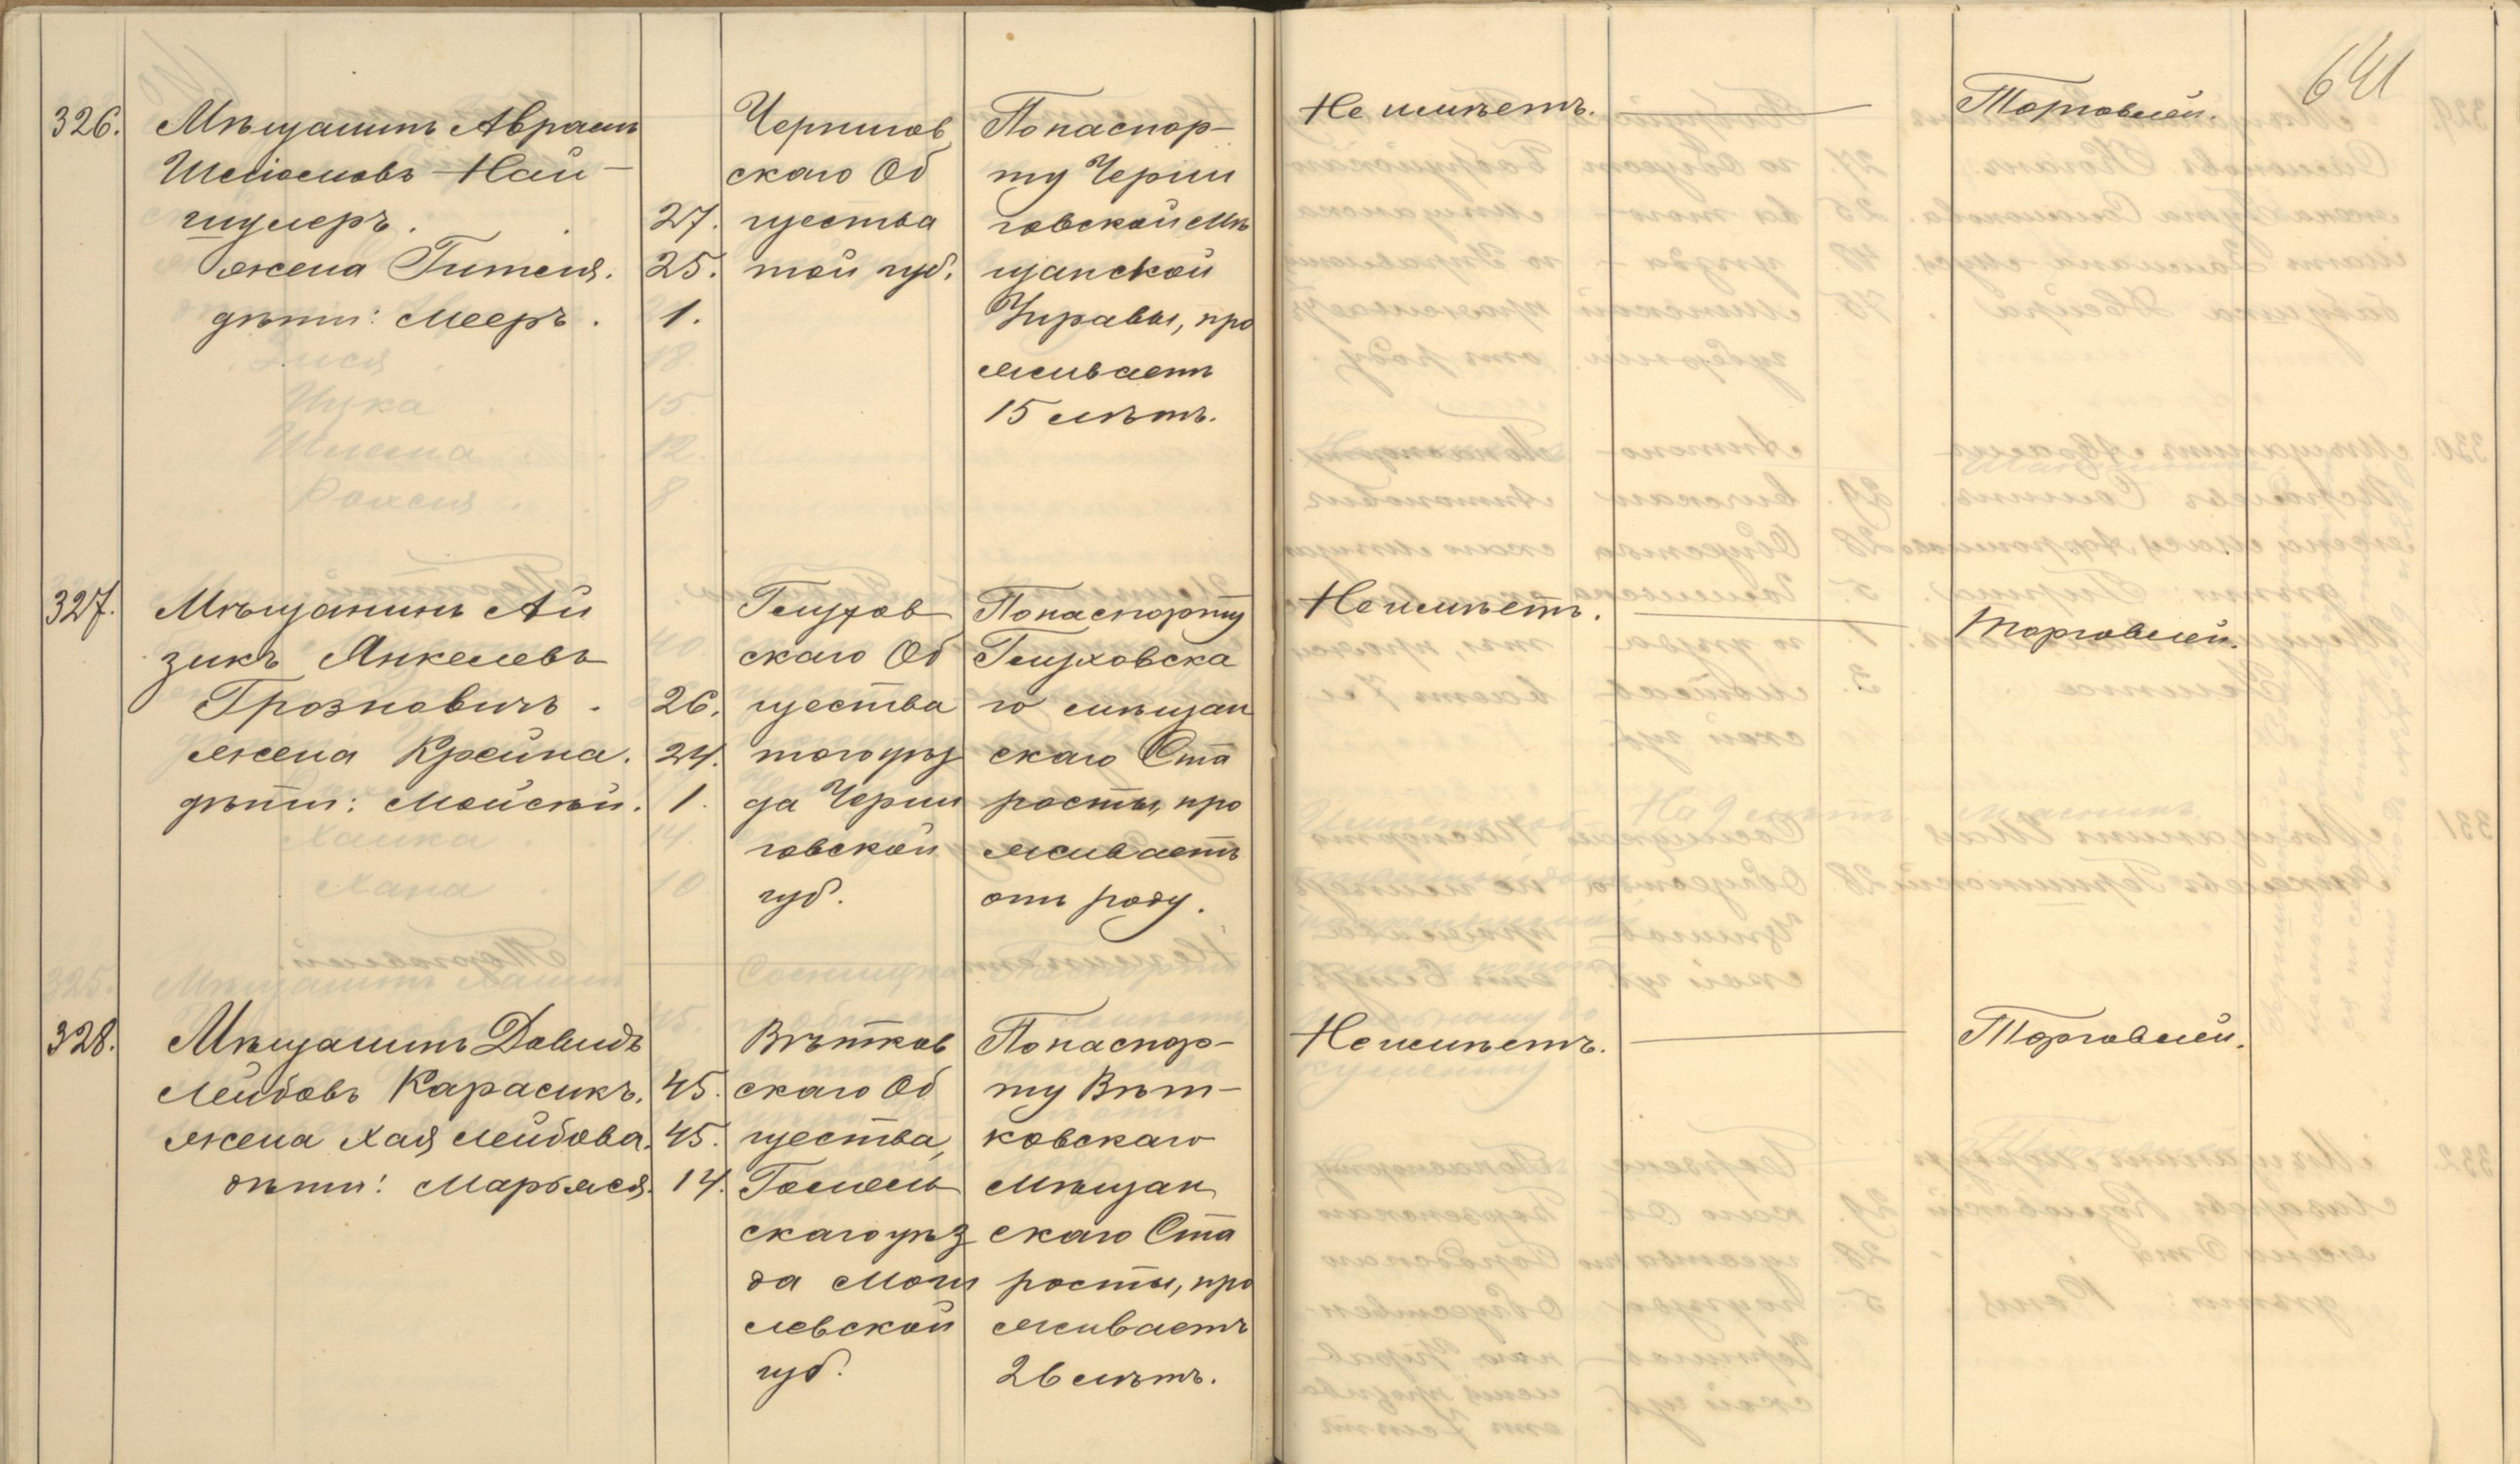 641
326.
Мѣщанинъ Авраамъ
Шеліомовъ Най-
шулеръ. 27.
жена Гителя. 25.
дѣти: Мееръ. 1.
Чернигов
скаго Об
щества
той губ.
По паспор-
ту Черни
говской Мѣ
щанской
Управы, про
живаетъ
15 лѣтъ.
Не имѣетъ.
Торговлей.
327.
Мѣщанинъ Ай
зикъ Янкелевъ
Грозновичъ. 26.
жена Крейна. 24.
дѣти: Мойсѣй. 1.
Глухов
скаго Об
щества
того уѣз
да Черни
говской
губ.
По паспорту
Глуховска
го мѣщан
скаго Ста
росты, про
живаетъ
отъ роду.
Не имѣетъ.
Торговлей.
328.
Мѣщанинъ Давидъ
Лейбовъ Карасикъ. 45.
жена Хая Лейбова. 45.
дѣти: Марьяся. 14.
Вѣтков
скаго Об
щества,
Гомель
скаго уѣз
да Моги
левской
губ.
По паспор-
ту Вѣт-
ковскаго
Мѣщан
скаго Ста
росты, про
живаетъ
26 лѣтъ.
Не имѣетъ.
Торговлей.